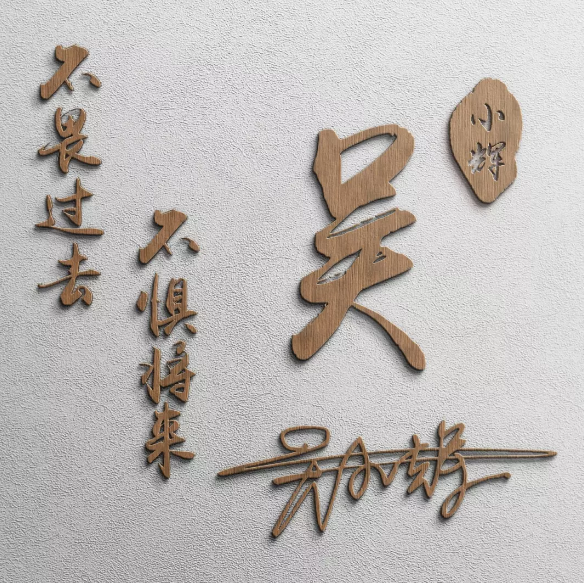 不畏过去
不惧将来
吴
小辉
吴小辉